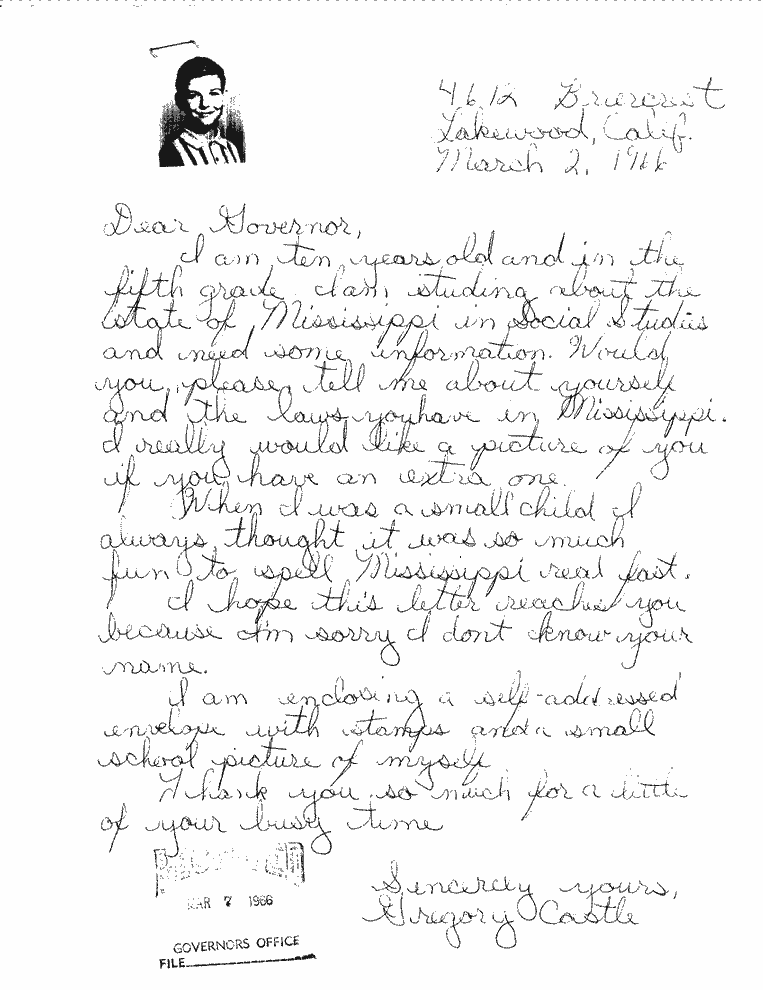 4612 Briercrest
Lakewood, Calif.
March 2, 1966
Dear Governor,
I am ten years old and in the
fifth grade. I am studing about the
state of Mississippi in Social Studies
and need some information. Would
you please tell me about yourself
and the laws you have in Mississippi.
I really would like a picture of you
if you have an extra one.
When I was a small child I
always thought it was so much
fun to spell Mississippi real fast.
I hope this letter reaches you
because I'm sorry I dont know your
name.
I am enclosing a self-addressed
envelope with stamps and a small
school picture of myself
Thank you so much for a little
of your busy time
Sincerely yours,
Gregory Castle
MAR 7 1966
GOVERNORS OFFICE
FILE